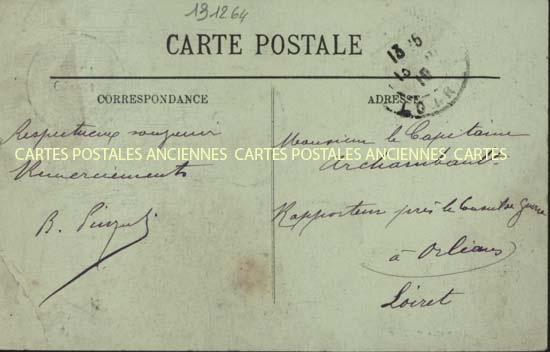 191264
CARTE POSTALE
CORRESPONDANCE
Respectueux souvenir
Remerciements
ADRESSE
Monsieur le Capitaine
Archambault
Rapporteur près le Conseil de Guerre
à Orléans
Loiret
CARTES POSTALES ANCIENNES CARTES POSTALES ANCIENNES CARTES